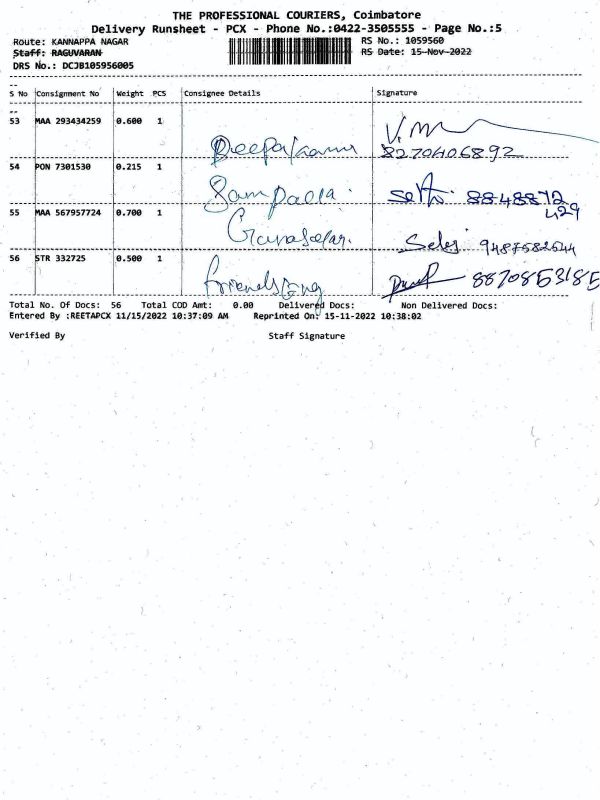 THE PROFESSIONAL COURIERS, Coimbatore
Delivery Runsheet - PCX - Phone No.:0422-3505555 - Page No.:5
Route: KANNAPPA NAGAR RS No.: 1059560
Staff: RAGUVARAN RS Date: 15-Nov-2022
DRS No.: DCJB105956005
S No Consignment No Weight PCS Consignee Details Signature
53 MAA 293434259 0.600 1
8270406892
54 PON 7301530 0.215 1
8848872
429
55 MAA 567957724 0.700 1
Selej 9487582544
56 STR 332725 0.500 1
8870853185
Total No. Of Docs: 56 Total COD Amt: 0.00 Delivered Docs: Non Delivered Docs:
Entered By :REETAPCX 11/15/2022 10:37:09 AM Reprinted On: 15-11-2022 10:38:02
Verified By Staff Signature